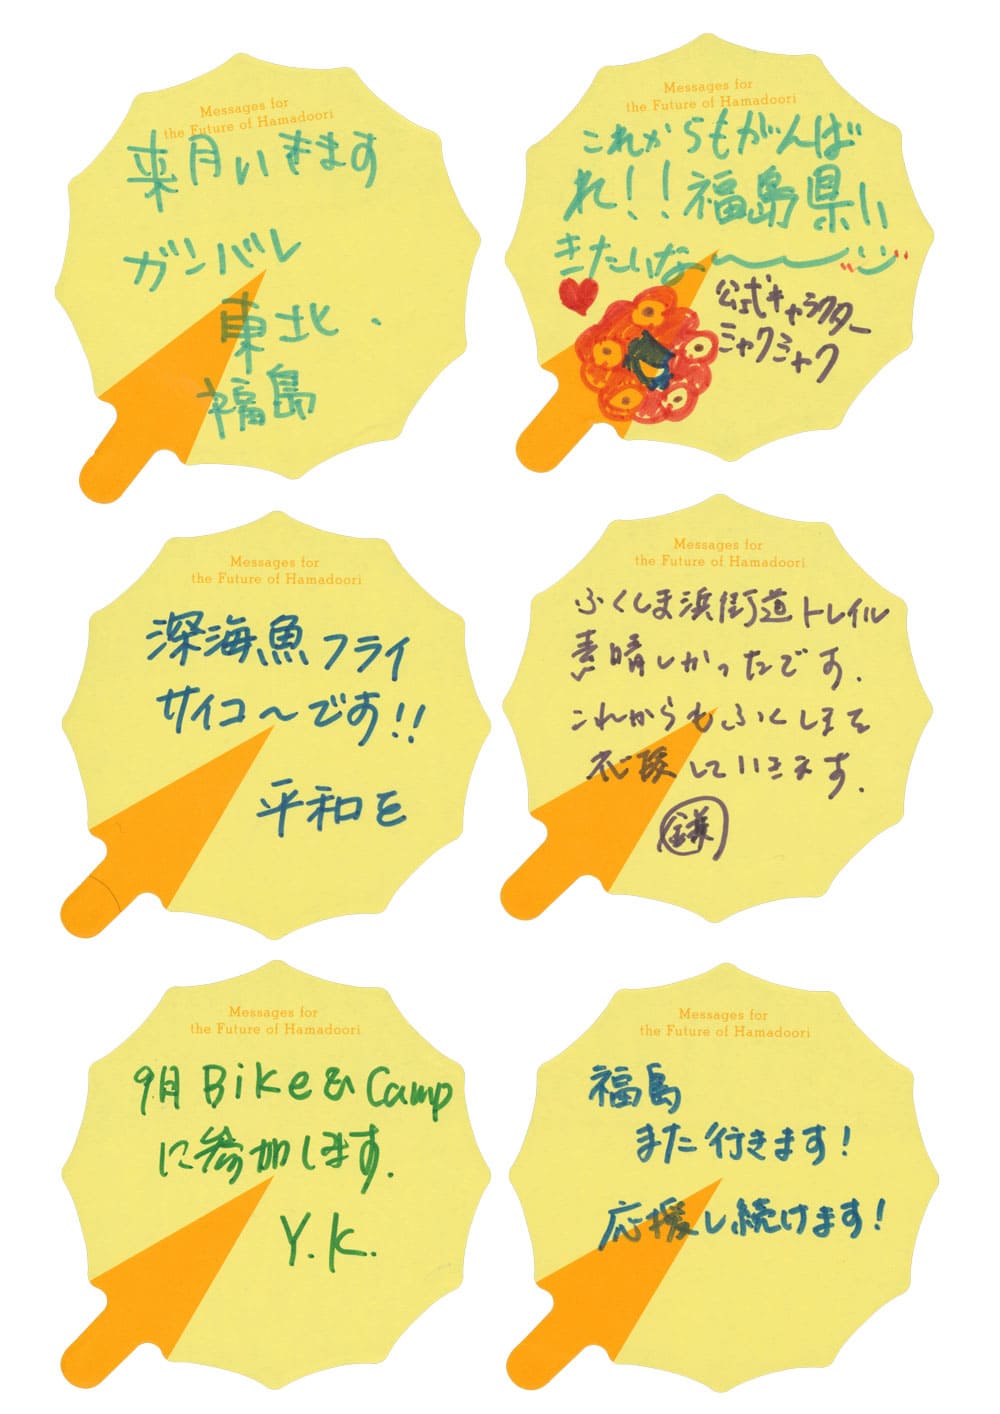 Messages for
the Future of Hamadoori
来月いきます
ガンバレ
東北・
福島
Messages for
the Future of Hamadoori
これからもがんば
れ!!福島県い
きたいな〜〜〜
公式キャラクター
ミャクミャク
Messages for
the Future of Hamadoori
深海魚フライ
サイコ〜です!!
平和を
Messages for
the Future of Hamadoori
ふくしま浜街道トレイル
素晴しかったです.
これからもふくしまを
応援していきます.
鎌
Messages for
the Future of Hamadoori
9月 Bike & Camp
に参加します.
Y.K.
Messages for
the Future of Hamadoori
福島
また行きます!
応援し続けます!